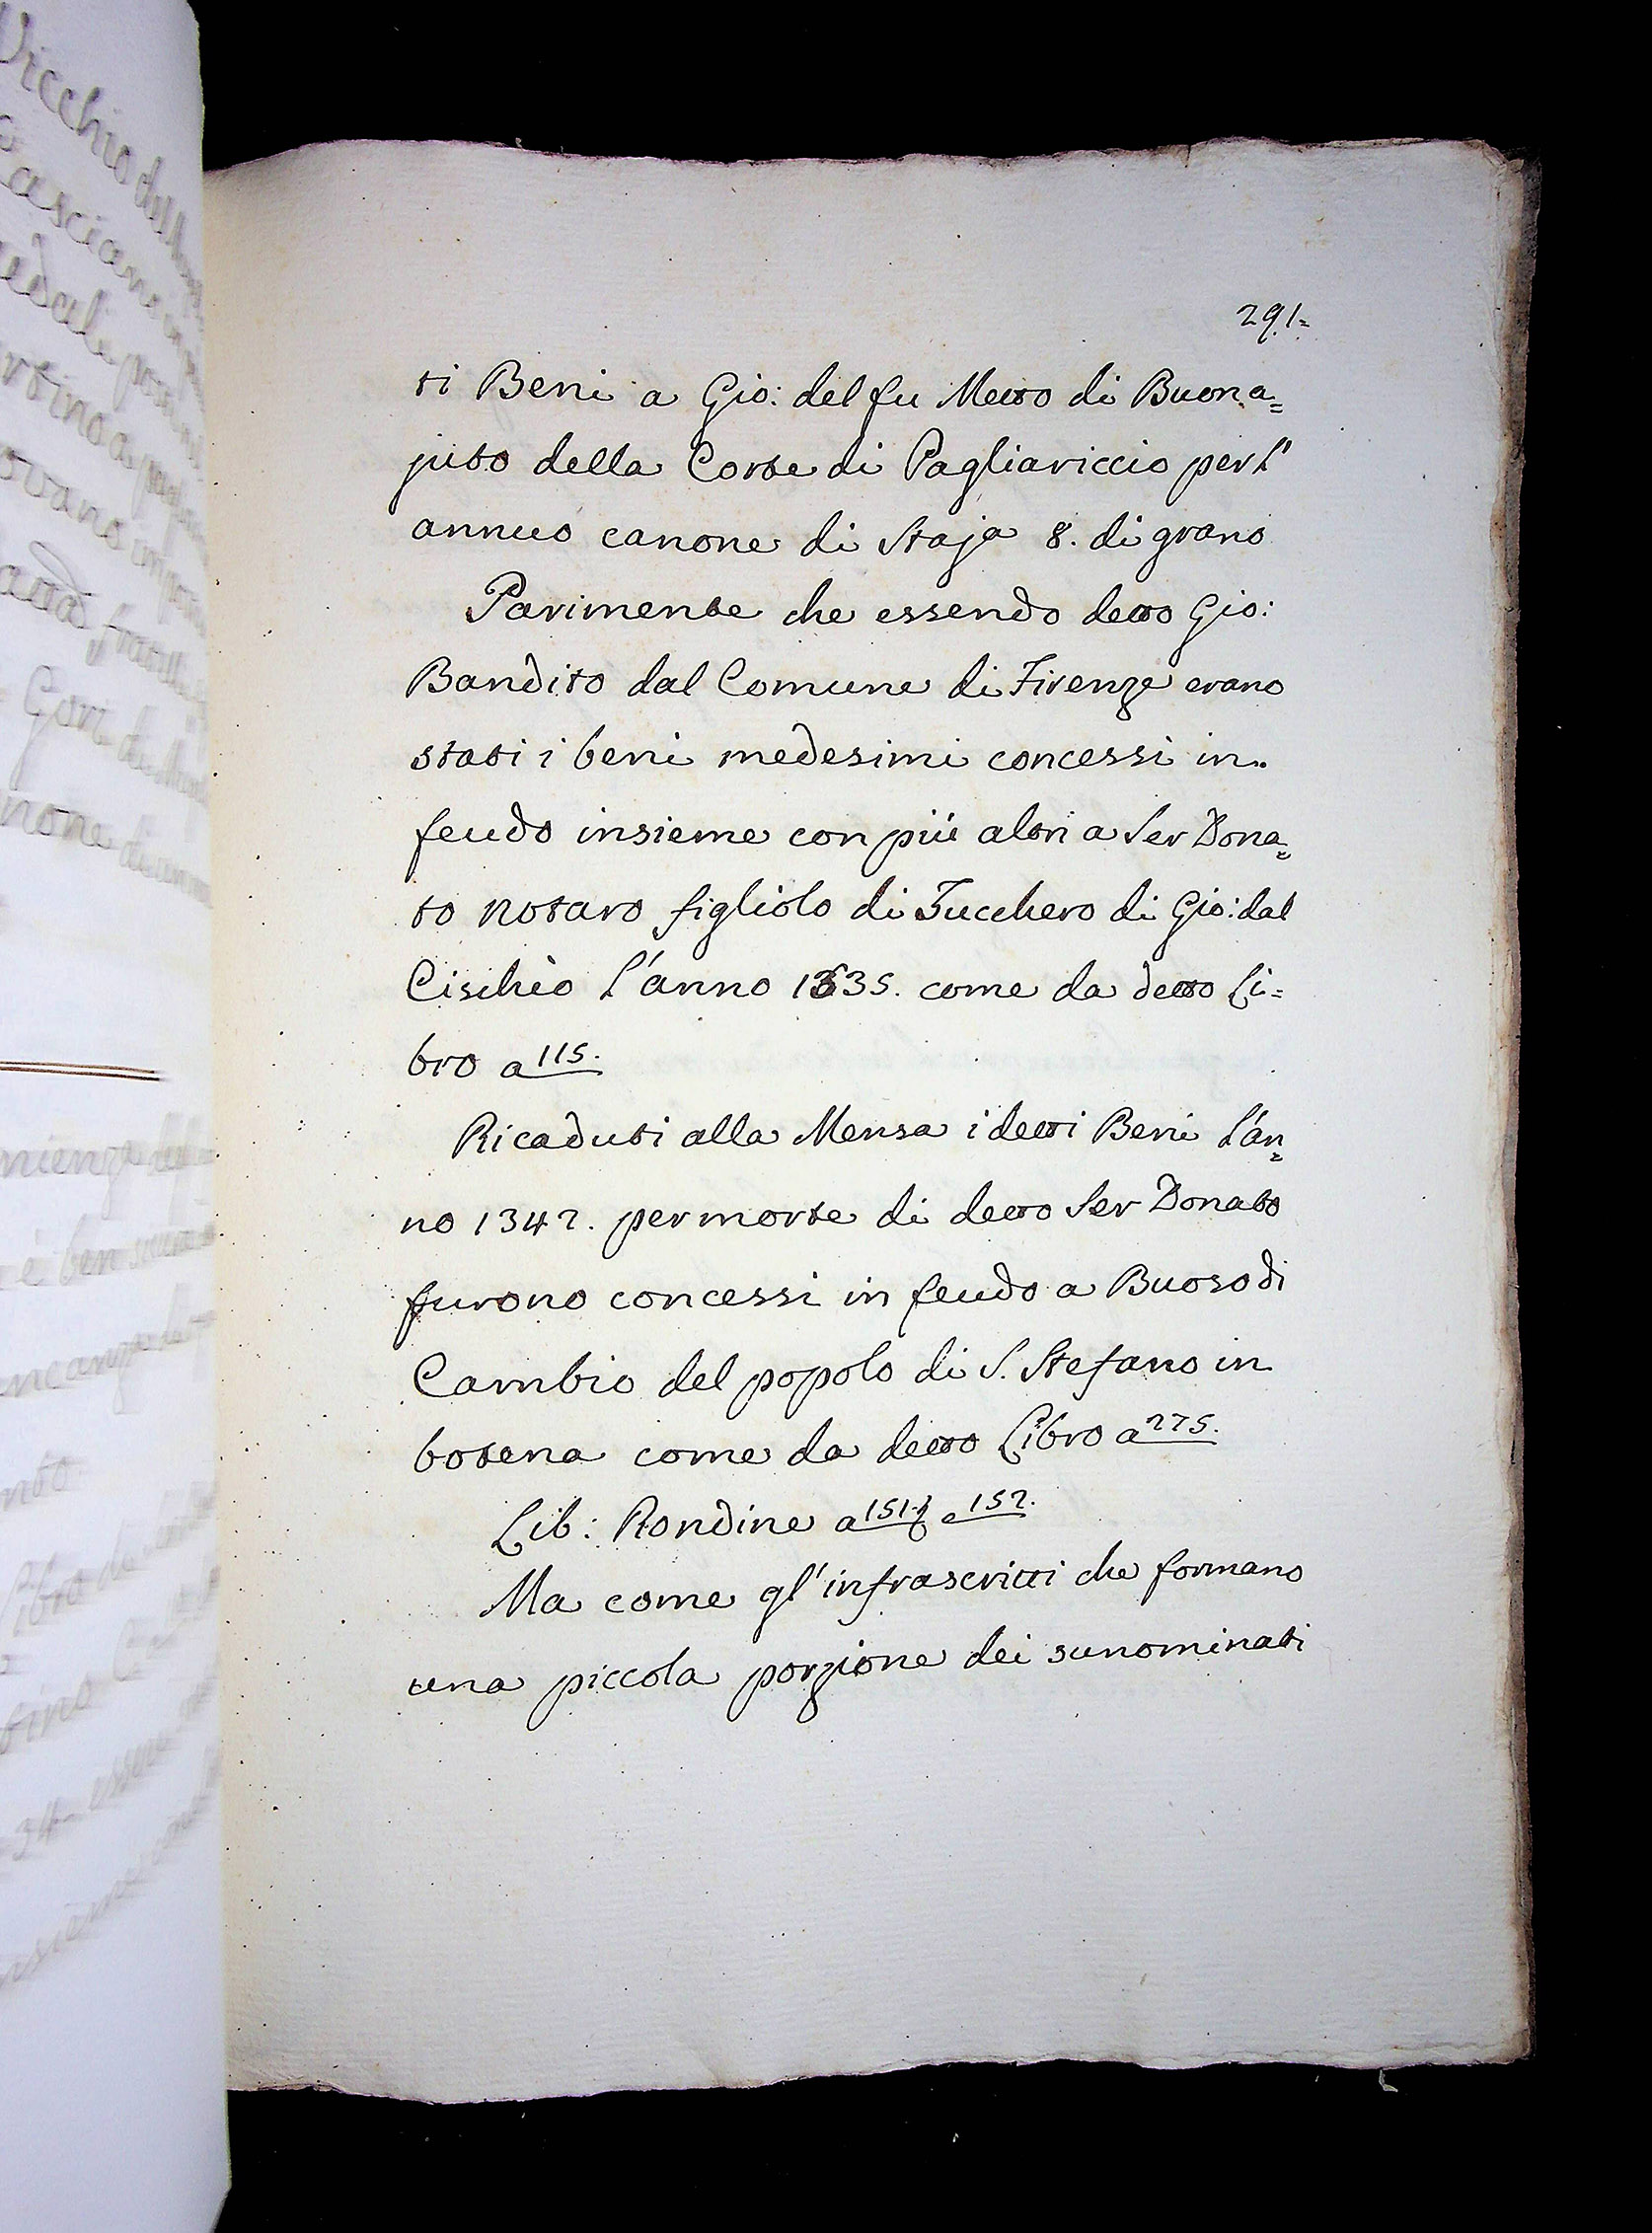 291=
ti Beni a Gio: del fu Metto di Buona=
juto della Corte di Pagliariccio per l'
annuo canone di Staja 8. di grano
Parimente che essendo detto Gio:
Bandito dal Comune di Firenze erano
stati i beni medesimi concessi in
feudo insieme con più altri a Ser Dona=
to notaro figliolo di Zucchero di Gio: dal
Cischio l'anno 1335. come da detto Li=
bro a 115.
Ricaduti alla Mensa i detti Beni l'an=
no 1342. per morte di detto Ser Donato
furono concessi in feudo a Buoso di
Cambio del popolo di S. Stefano in
botena come da detto Libro a 275.
Lib: Rondine a 151. e 152.
Ma come gl'infrascritti che formano
una piccola porzione dei sunominati